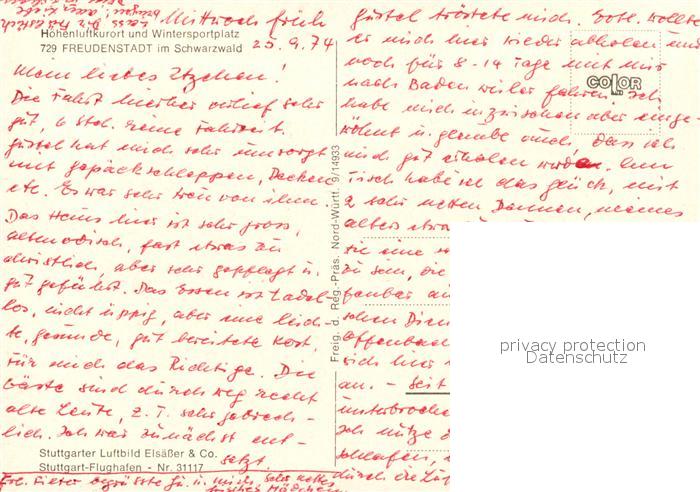 Mittwoch früh
Höhenluftkurort und Wintersportplatz
729 FREUDENSTADT im Schwarzwald
25.9.74
Mein liebes
Die Fahrt hierher verlief sehr
gut, 6 Std. reine Fahrzeit.
Gustel hat mich sehr umsorgt
mit Gepäckschleppen, Decken
etc. Es war sehr von ihm.
Das Haus hier ist sehr gross,
altmodisch, fast etwas zu
christlich, aber sehr gepflegt u.
gut geführt. Das Essen ist tadel-
los, nicht üppig, aber eine leich-
te, gesunde, gut bereitete Kost,
für mich das Richtige. Die
Gäste sind durchweg recht
alte Leute, z.T. sehr gebrech-
lich. Ich war zunächst ent-
setzt.
Stuttgarter Luftbild Elsäßer & Co.
Stuttgart-Flughafen - Nr. 31117
Freig. d. Reg.-Präs. Nord-Württ. 9/14933
Gustel tröstete mich. Evtl. wollte
er mich hier wieder abholen und
noch für 8-14 Tage mit mir
nach Badenweiler fahren. Ich
habe mich inzwischen aber einge-
wöhnt u. glaube auch, dass ich
mich gut erholen werde. Am
Tisch habe ich das Glück, mit
2 sehr netten Damen, meines
Alters etwa
sie eine
zu sein, die
fenbar
schen
Offenbach
sich hier
an. - Seit
unterbroche
Ich nütze
schlafen,
durch die
COLOR
privacy protection
Datenschutz